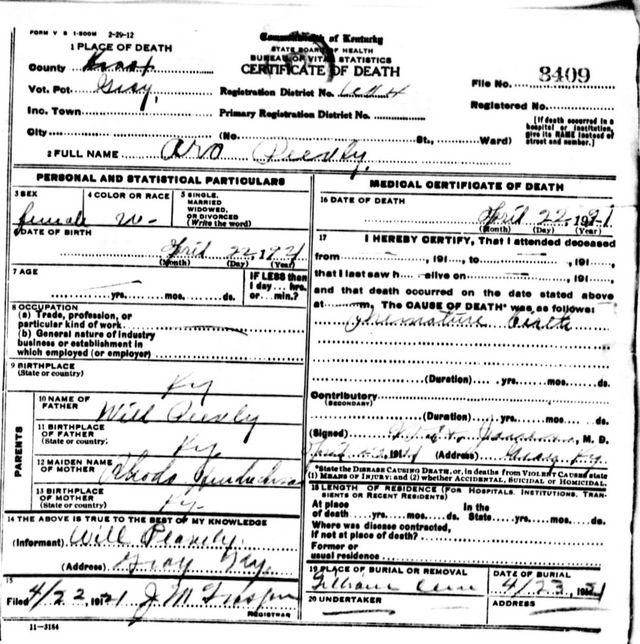 FORM V S 1-500M 2-29-12
Commonwealth of Kentucky
STATE BOARD OF HEALTH
BUREAU OF VITAL STATISTICS
CERTIFICATE OF DEATH
1 PLACE OF DEATH
County Knox
Vot. Pct Gray
Inc. Town
City (No. St., Ward)
Registration District No.
Primary Registration District No.
File No. 3409
Registered No.
[If death occurred in a hospital or institution, give its NAME instead of street and number.]
2 FULL NAME
PERSONAL AND STATISTICAL PARTICULARS
3 SEX female
4 COLOR OR RACE W-
5 SINGLE, MARRIED WIDOWED, OR DIVORCED (Write the word)
6 DATE OF BIRTH
April 22, 1921
(Month) (Day) (Year)
7 AGE
yrs. mos. ds.
IF LESS than 1 day.... hrs. or.... min.?
8 OCCUPATION
(a) Trade, profession, or particular kind of work
(b) General nature of industry business or establishment in which employed (or employer)
9 BIRTHPLACE (State or country)
Ky
PARENTS
10 NAME OF FATHER Will
11 BIRTHPLACE OF FATHER (State or country) Ky.
12 MAIDEN NAME OF MOTHER Rhoda
13 BIRTHPLACE OF MOTHER (State or country) Ky-
14 THE ABOVE IS TRUE TO THE BEST OF MY KNOWLEDGE
(Informant) Will
(Address) Gray Ky.
15
Filed 4/22 1921 J M
REGISTRAR
11-3184
MEDICAL CERTIFICATE OF DEATH
16 DATE OF DEATH
April 22, 1921
(Month) (Day) (Year)
17 I HEREBY CERTIFY, That I attended deceased
from , 191 , to , 191 ,
that I last saw h alive on , 191 ,
and that death occurred on the date stated above
at m. The CAUSE OF DEATH* was as follows:
Premature birth
(Duration) yrs. mos. ds.
Contributory
(SECONDARY)
(Duration) yrs. mos. ds.
(Signed) , M. D.
191 (Address) Gray, Ky.
*State the DISEASE CAUSING DEATH, or, in deaths from VIOLENT CAUSES state (1) MEANS OF INJURY: and (2) whether ACCIDENTAL, SUICIDAL or HOMICIDAL
18 LENGTH OF RESIDENCE (FOR HOSPITALS, INSTITUTIONS, TRANSIENTS OR RECENT RESIDENTS)
At place of death yrs. mos. ds. In the State yrs. mos. ds.
Where was disease contracted,
if not at place of death?
Former or
usual residence
19 PLACE OF BURIAL OR REMOVAL
DATE OF BURIAL
4/23 1921
20 UNDERTAKER
ADDRESS